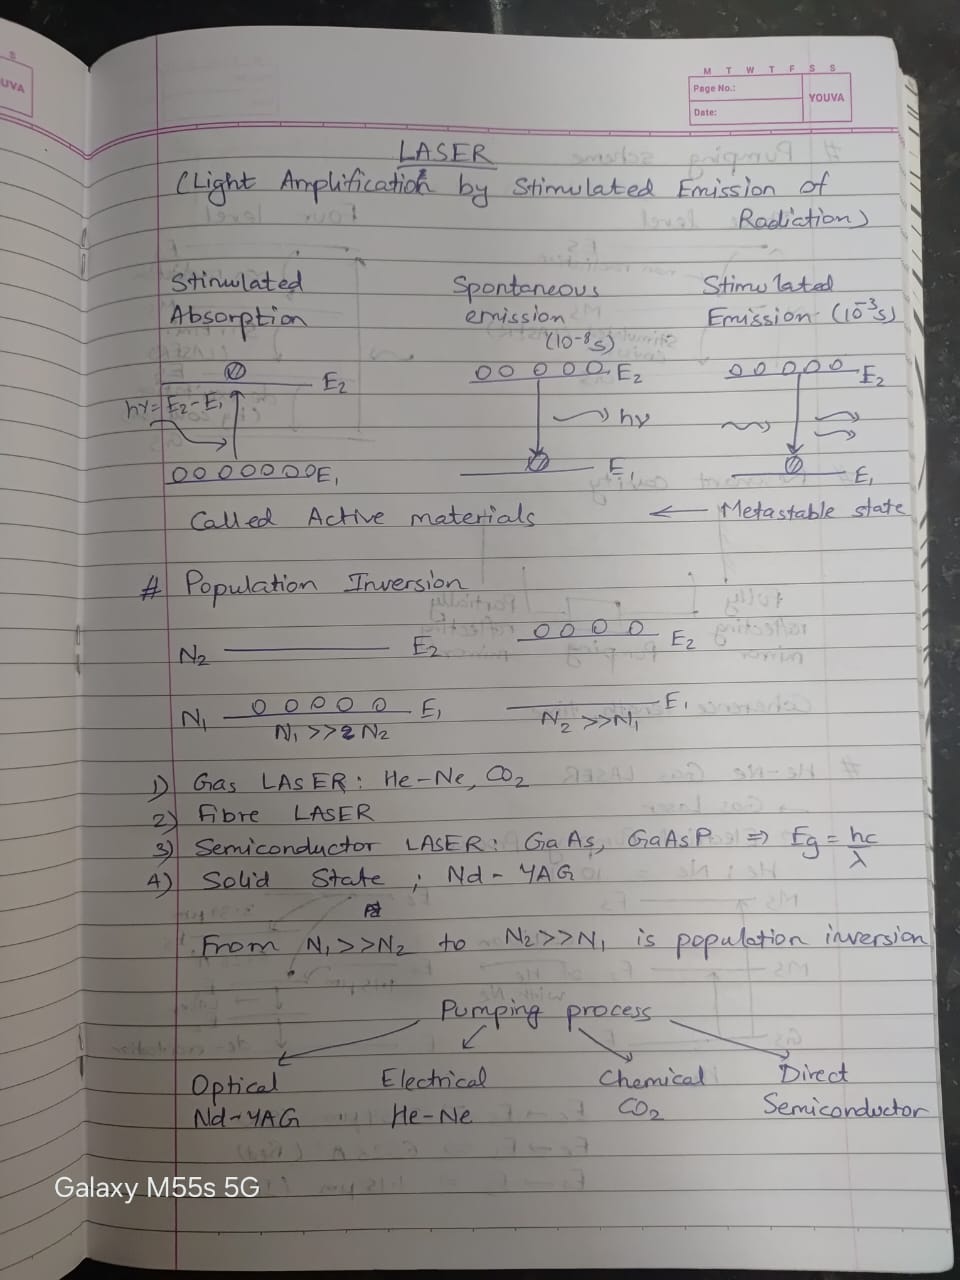 M T W T F S S
Page No.:
Date:
YOUVA
UVA
S
LASER
(Light Amplification by Stimulated Emission of
Radiation)
Stimulated Absorption
Spontaneous emission (10⁻⁸s)
Stimulated Emission (10⁻³s)
E₂
hν = E₂-E₁
E₁
E₂
hν
E₁
E₂
E₁
Called Active materials ← Metastable state
# Population Inversion
N₂ E₂ E₂
N₁ E₁ E₁
N₁ >> N₂ N₂ >> N₁
1) Gas LASER: He-Ne, CO₂
2) Fibre LASER
3) Semiconductor LASER: GaAs, GaAsP ⇒ Eg = hc/λ
4) Solid State ; Nd-YAG
From N₁>>N₂ to N₂>>N₁ is population inversion
Pumping process
Optical Electrical Chemical Direct
Nd-YAG He-Ne CO₂ Semiconductor
Galaxy M55s 5G